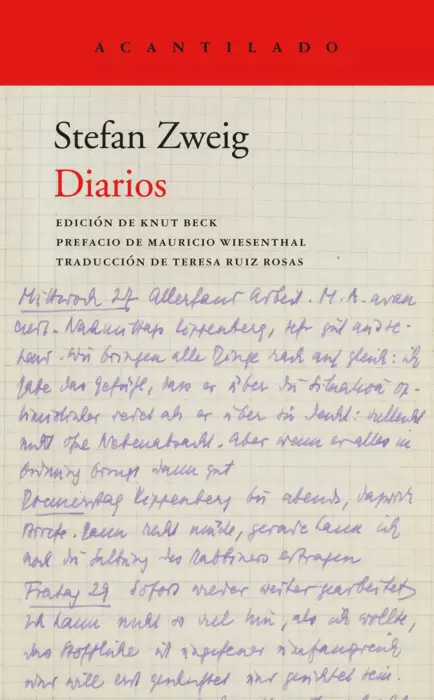 ACANTILADO
Stefan Zweig
Diarios
EDICIÓN DE KNUT BECK
PREFACIO DE MAURICIO WIESENTHAL
TRADUCCIÓN DE TERESA RUIZ ROSAS
Mittwoch 27 Allerhand Arbeit. M. A. avan
ciert. Nachmittags Kippenberg, sehr gut und
Wir bringen alle Dinge rasch auf gleich: ich
habe das Gefühl, dass er über die Situation op-
timistischer redet als er über sie denkt: vielleicht
nicht ohne Nebenabsicht. Aber wenn er alles in
Ordnung bringt dann gut
Donnerstag Kippenberg bis abends,
Kann nicht mehr, gerade kann ich
noch die des Rabbiners ertragen
Freitag 29 Sofort wieder weitergearbeitet
Ich kann nicht so viel thun, als ich wollte,
das Stoffliche ist ungeheuer umfangreich
und will erst und gesichtet sein.